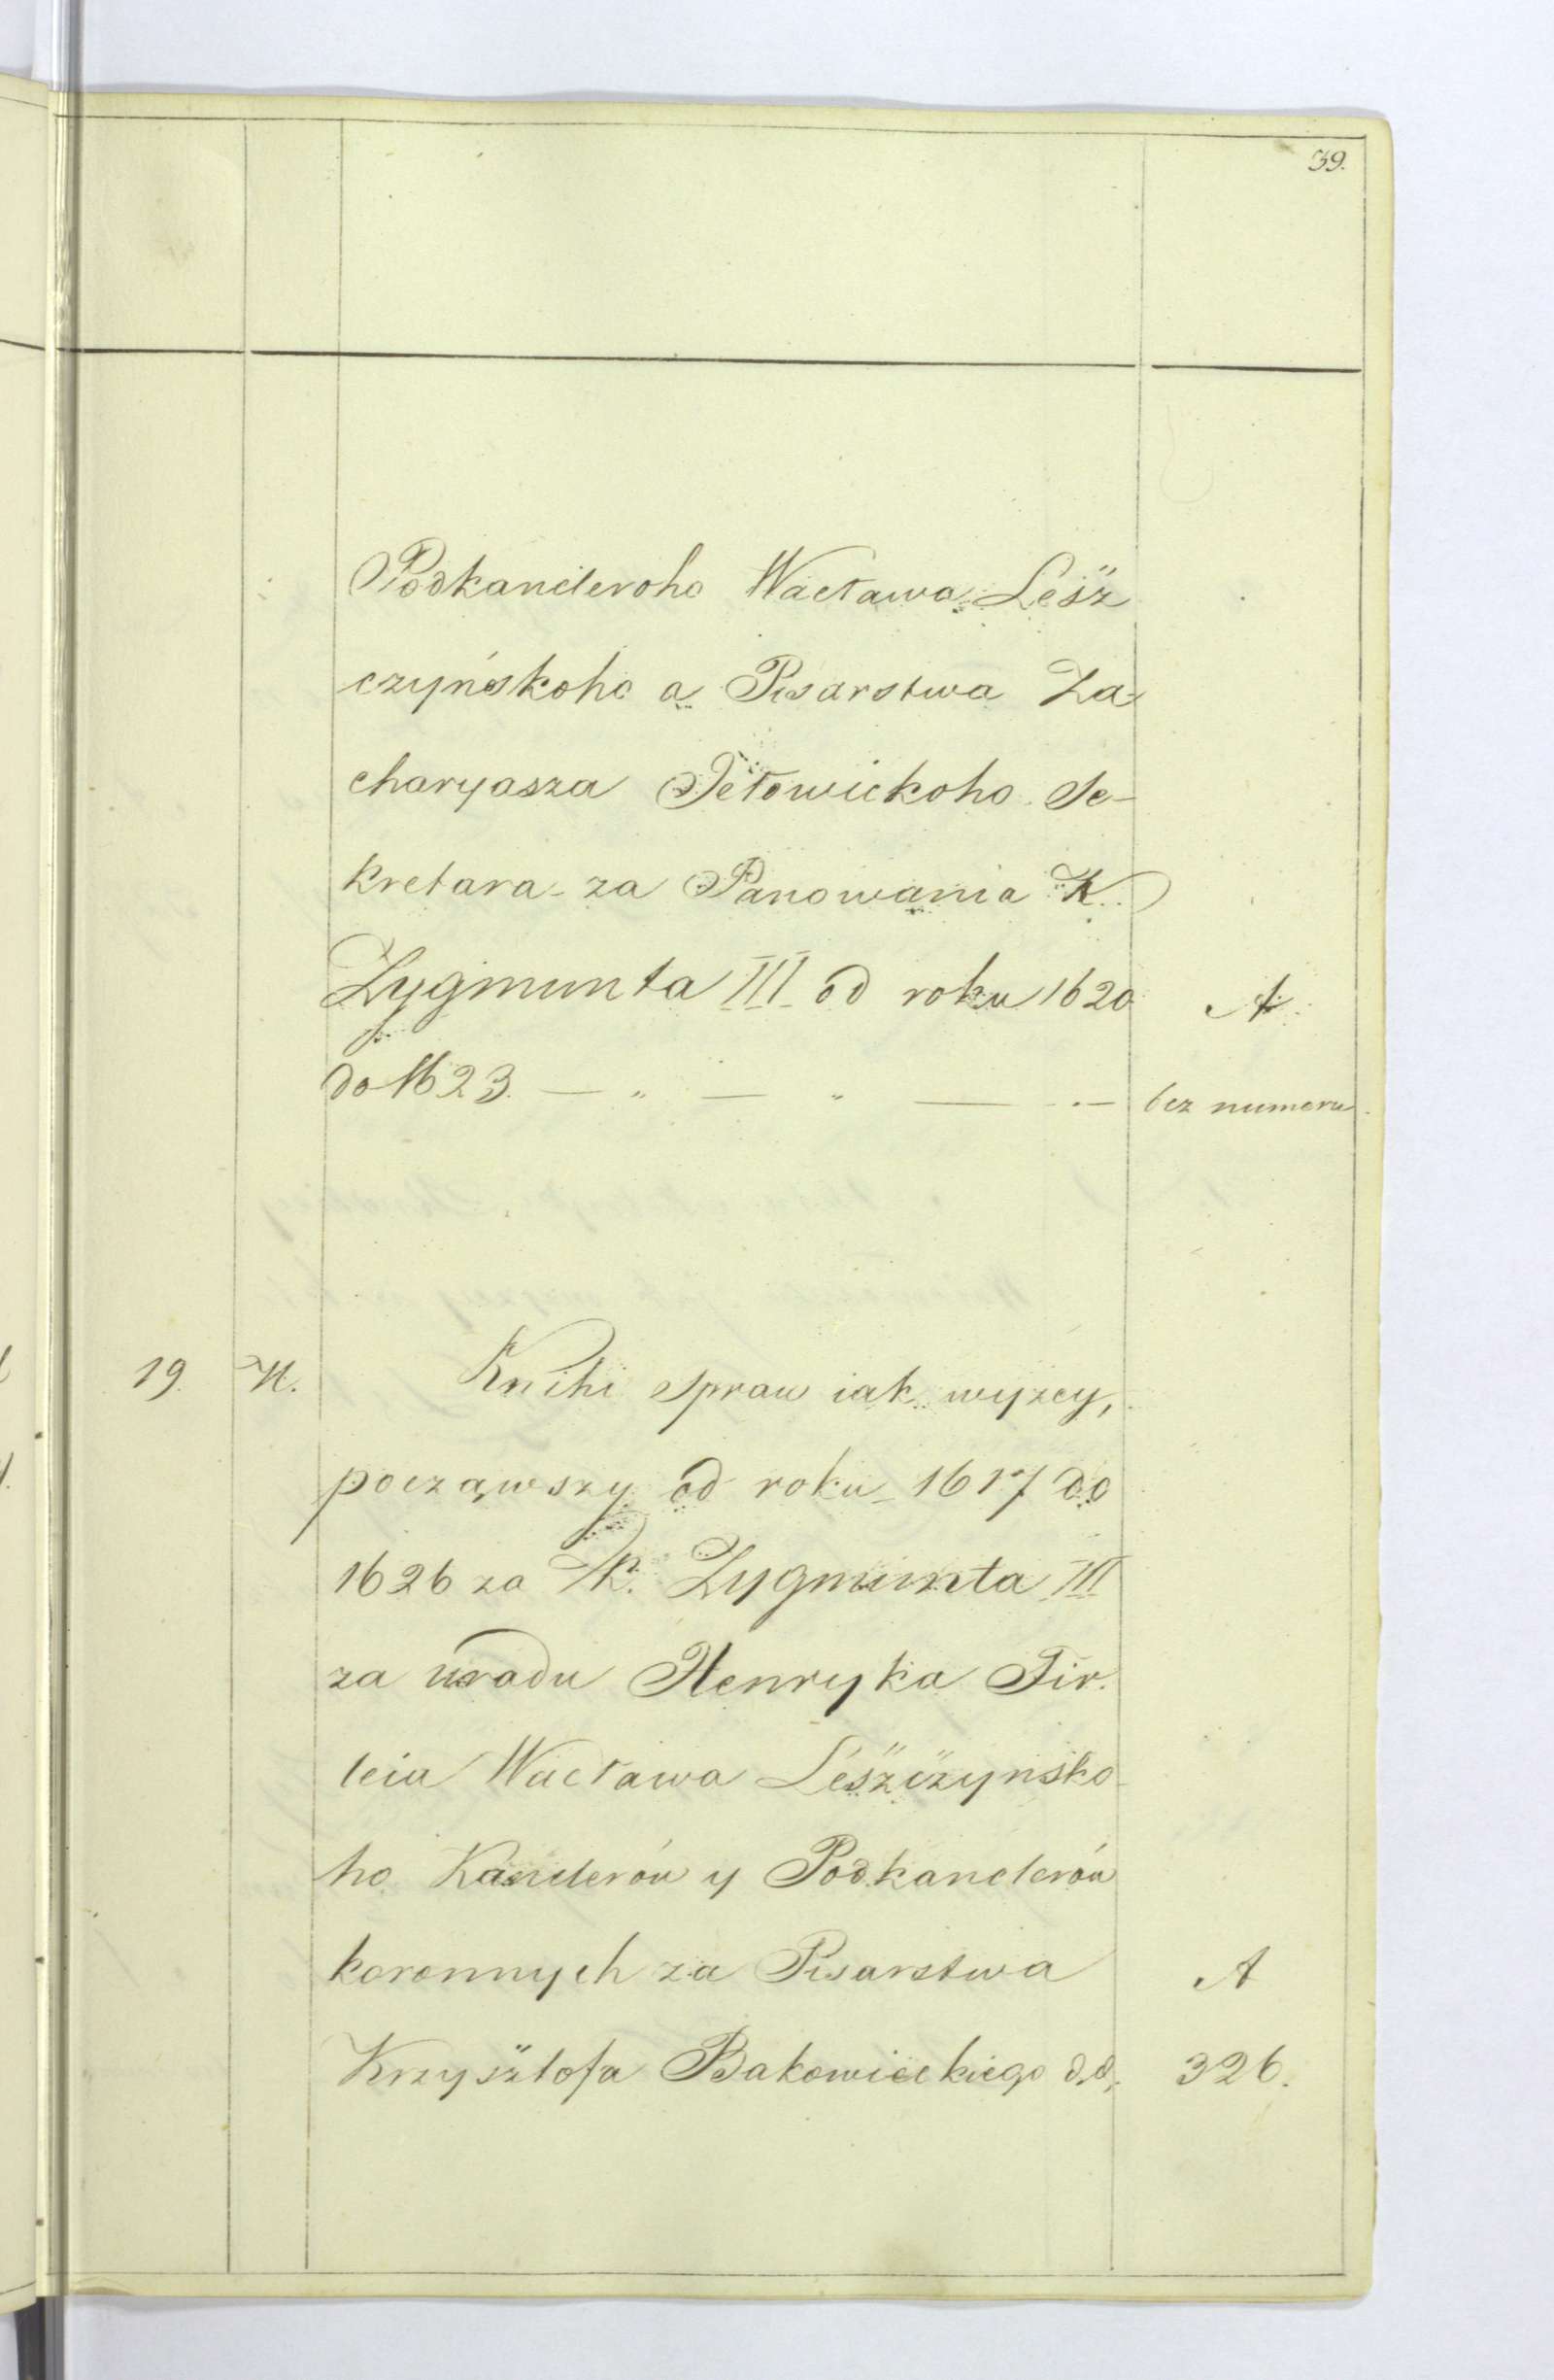 39.
Podkancleroho Wacława Lesz
czyńskoho a Pisarstwa Za-
charyasza Jełowickoho Se-
kretara za Panowania K.
Zygmunta III od roku 1620 A
do 1623. — „ — „ — . — bez numeru
19. N. Knihi spraw iak wyzey,
począwszy od roku 1617 do
1626 za K. Zygmunta III
za uradu Henryka Fir.
leia Wacława Leszczynsko-
ho Kanclerów y Podkanclerów
koronnych za Pisarstwa A
Krzysztofa Bakowieckiego d.d. 326.